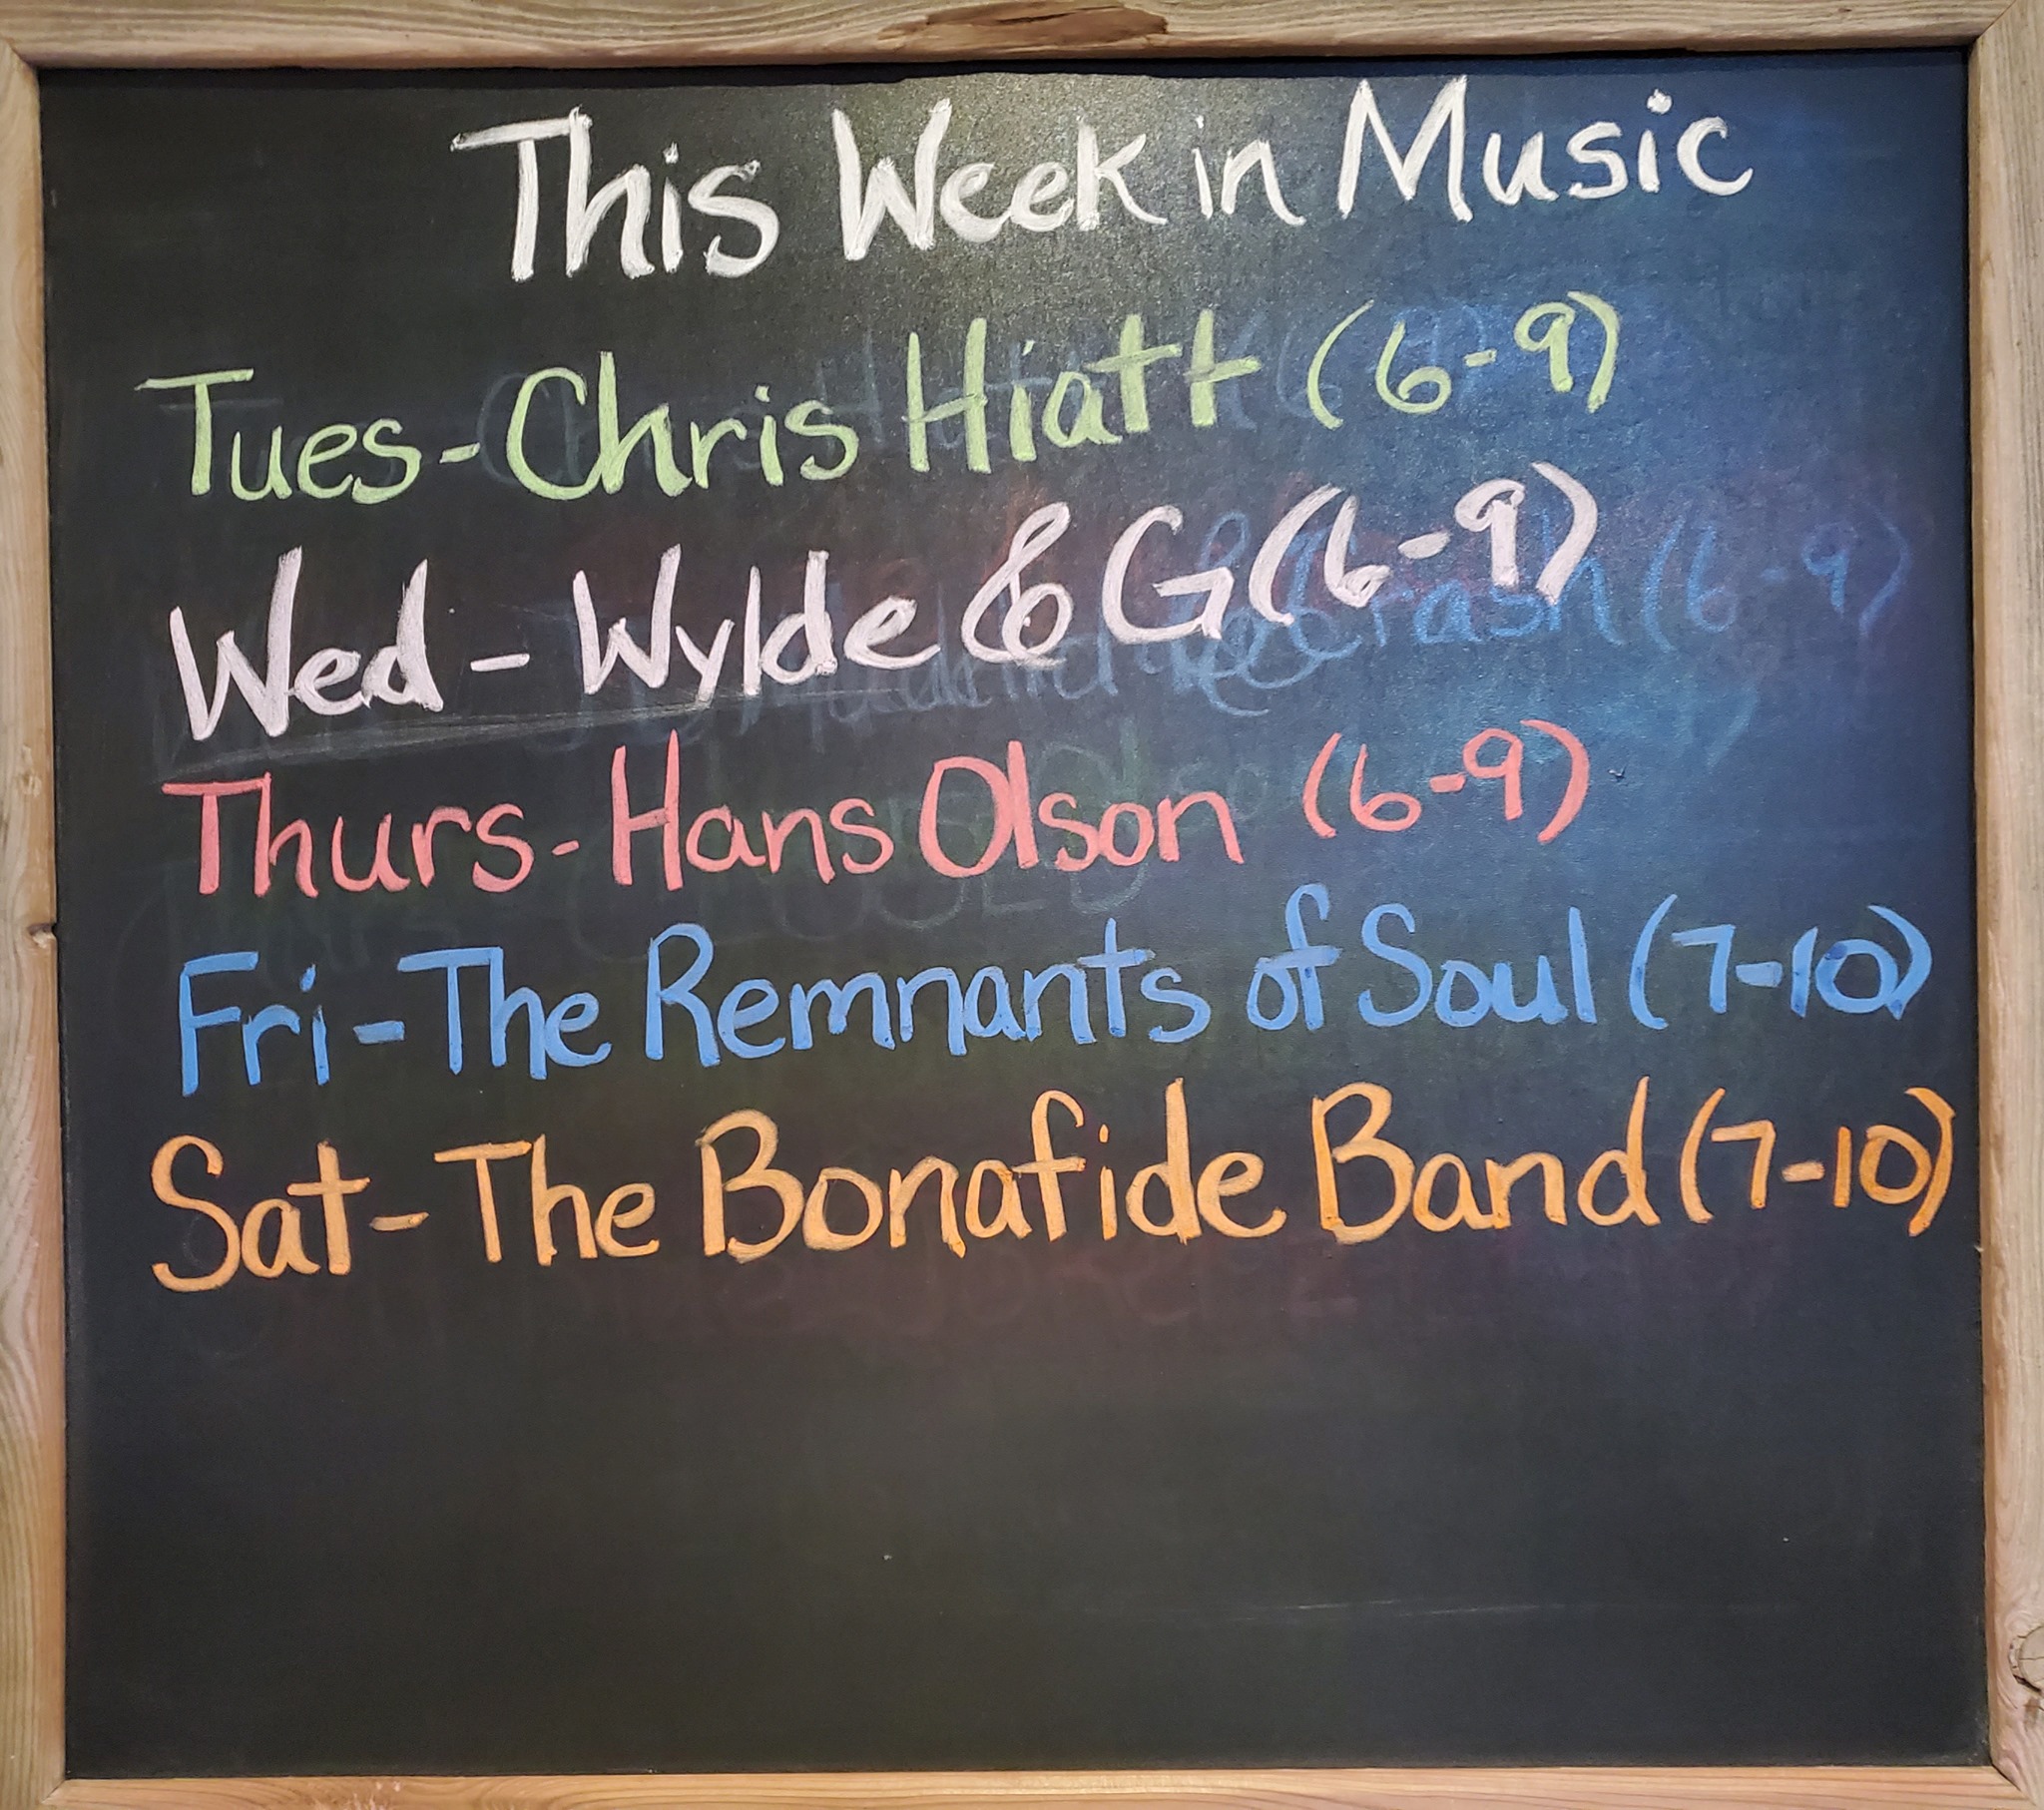 This Week in Music
Tues-Chris Hiatt (6-9)
Wed - Wylde & G (6-9)
Thurs-Hans Olson (6-9)
Fri-The Remnants of Soul (7-10)
Sat-The Bonafide Band (7-10)